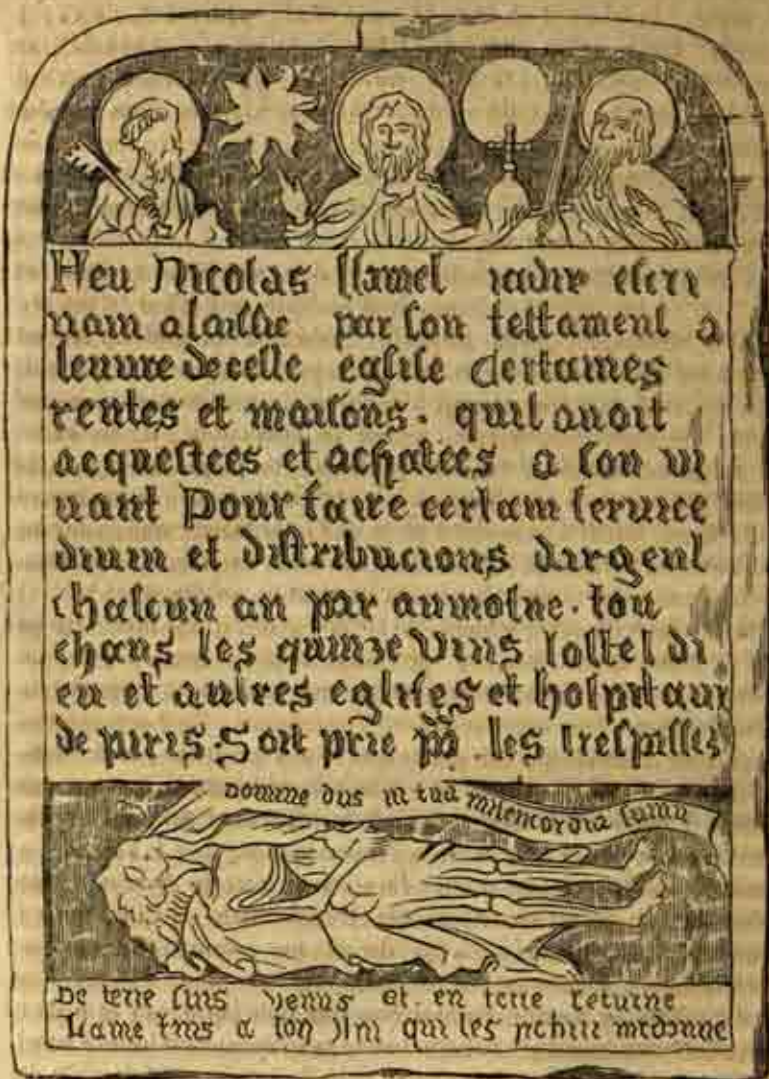 Feu Nicolas flamel jadis escri
vain a laissie par son testament a
leuvre de ceste eglise certaines
rentes et maisons . quil avoit
acquestees et achatees a son vi
vant pour faire certain service
divin et distribucions dargent
chascun an par aumosne . tou
chans les quinze vins lostel di
eu et autres eglises et hospitaux
de paris . Soit prie po . les trespasses
Domine deus in tua misericordia
De terre suis venus et en terre retorne
Lame rens a toy qui les